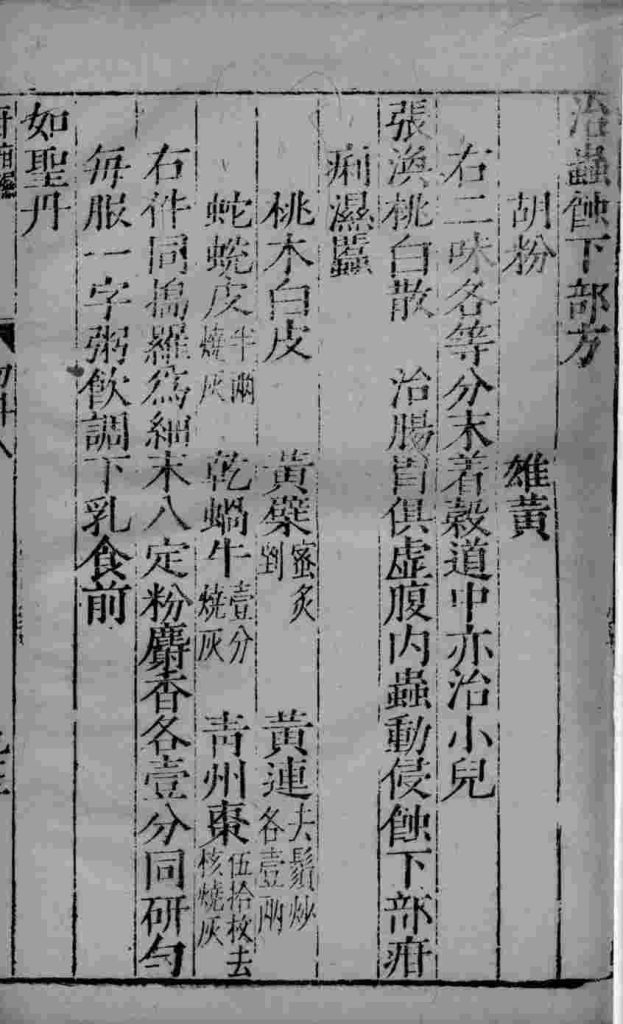 治蟲蝕下部方
胡粉 雄黃
右二味各等分末着穀道中亦治小兒
張渙桃白散 治腸胃俱虛腹内蟲動侵蝕下部疳
痢濕䘌
桃木白皮 黃蘗蜜炙剉 黃連去鬚炒各壹兩
蛇蛻皮半兩燒灰 乾蝸牛壹分燒灰 青州棗伍拾枚去核燒灰
右件同搗羅爲細末入定粉麝香各壹分同研勻
每服一字粥飲調下乳食前
如聖丹